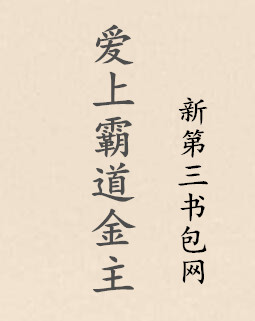 爱上霸道金主
新第三书包网